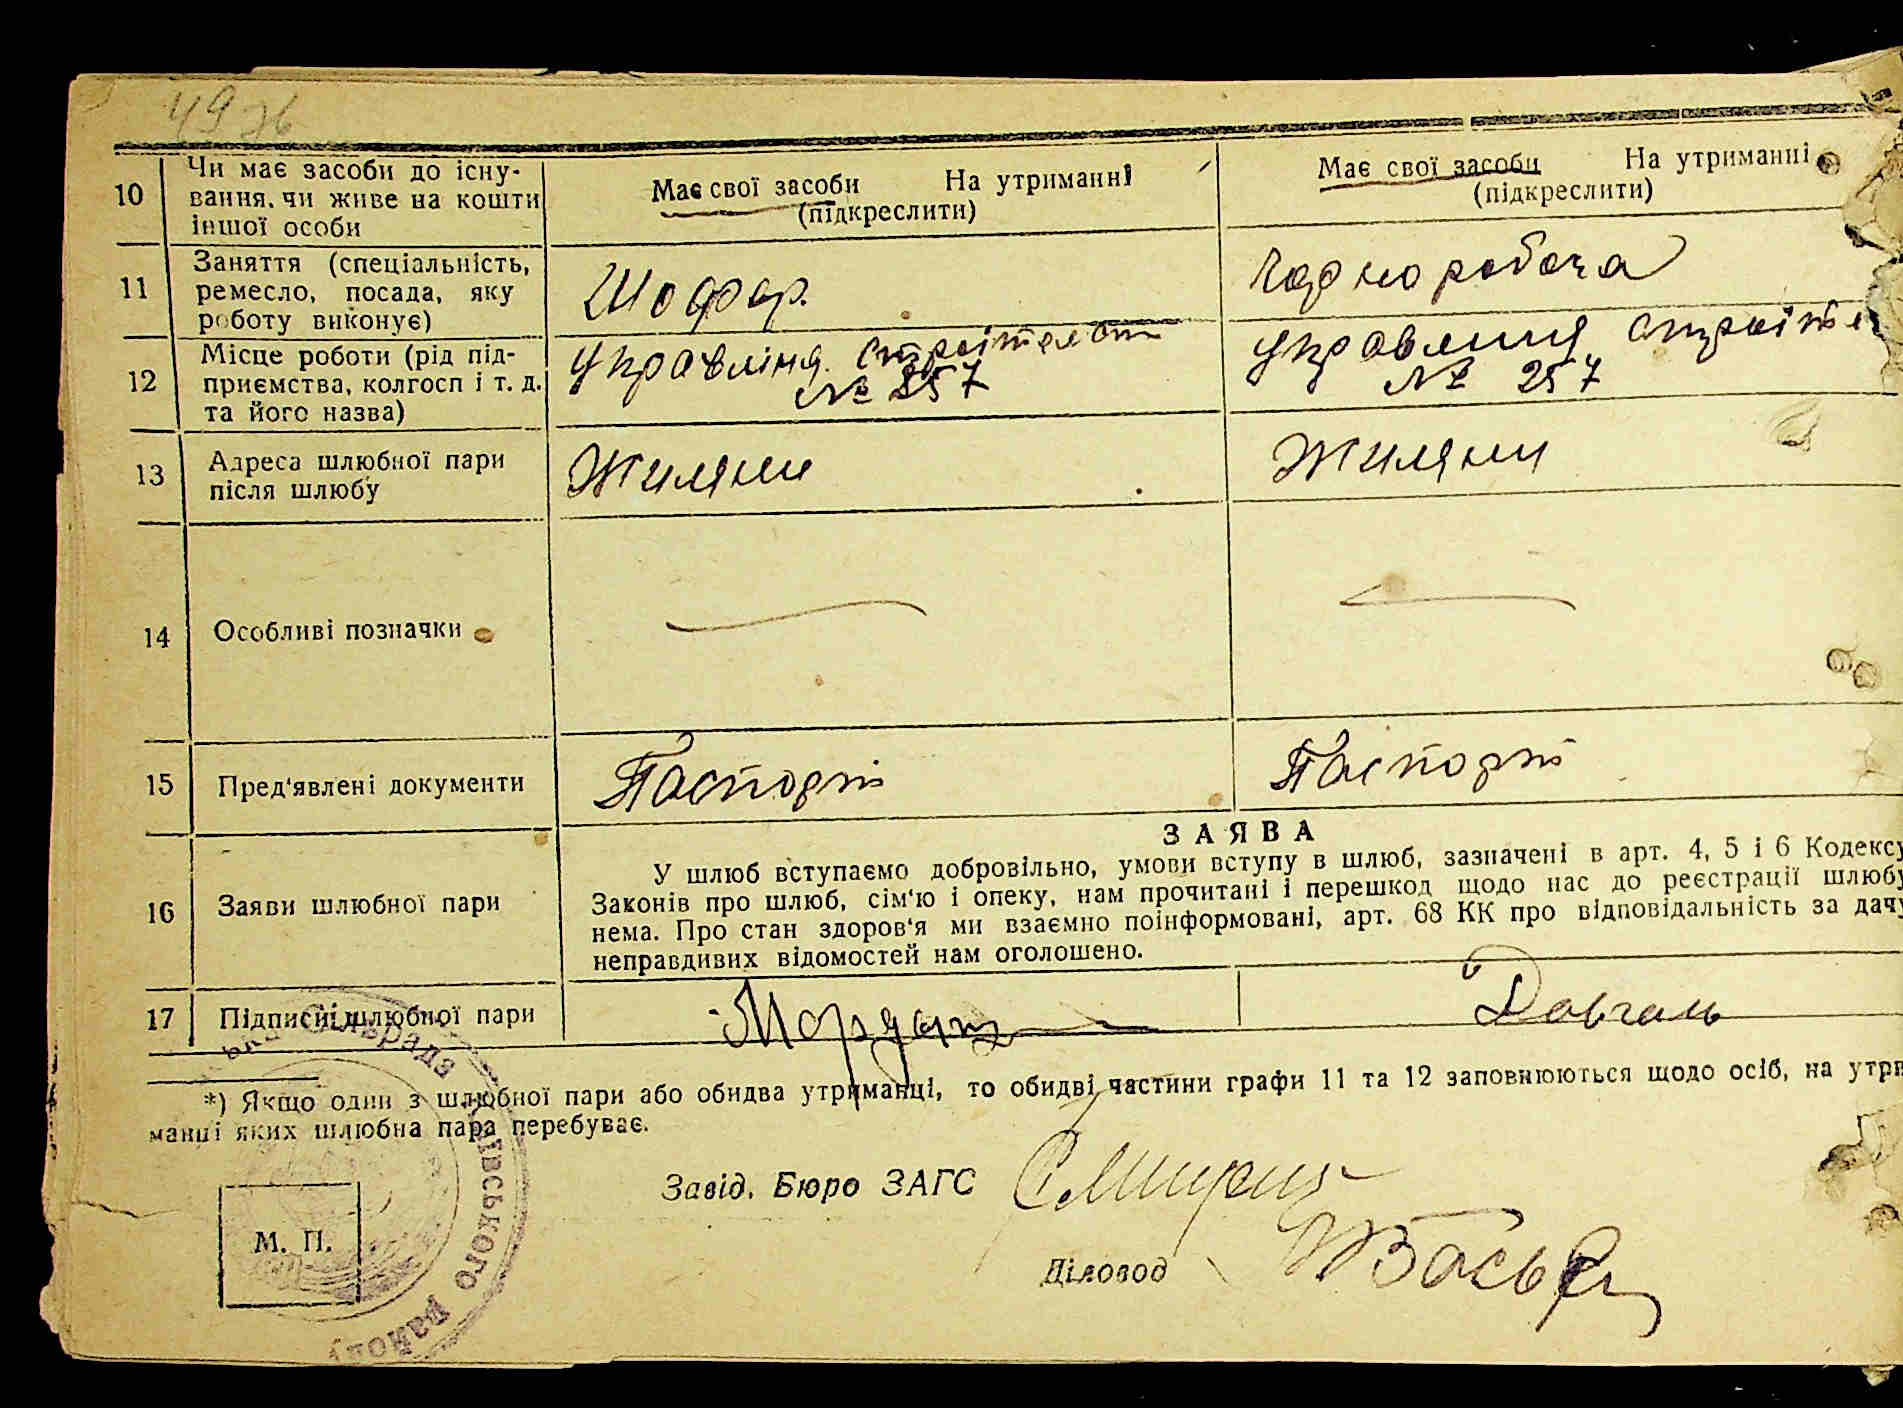 49 зв
10 Чи має засоби до існу-
вання, чи живе на кошти
іншої особи
Має свої засоби На утриманні
(підкреслити)
Має свої засоби На утриманні
(підкреслити)
11 Заняття (спеціальність,
ремесло, посада, яку
роботу виконує)
Шофер.
Чорноробоча
12 Місце роботи (рід під-
приємства, колгосп і т. д.
та його назва)
Управліня.
№ 257
Управлиня
№ 257
13 Адреса шлюбної пари
після шлюбу
Жиляни
Жиляни
14 Особливі позначки
15 Пред'явлені документи
Паспорт
Паспорт
16 Заяви шлюбної пари
ЗАЯВА
У шлюб вступаємо добровільно, умови вступу в шлюб, зазначені в арт. 4, 5 і 6 Кодексу
Законів про шлюб, сім'ю і опеку, нам прочитані і перешкод щодо нас до реєстрації шлюбу
нема. Про стан здоров'я ми взаємно поінформовані, арт. 68 КК про відповідальність за дачу
неправдивих відомостей нам оголошено.
17 Підписи шлюбної пари
Довгаль
*) Якщо один з шлюбної пари або обидва утриманці, то обидві частини графи 11 та 12 заповнюються щодо осіб, на утри
манці яких шлюбна пара перебуває.
Завід. Бюро ЗАГС
Діловод
М. П.
ївського району